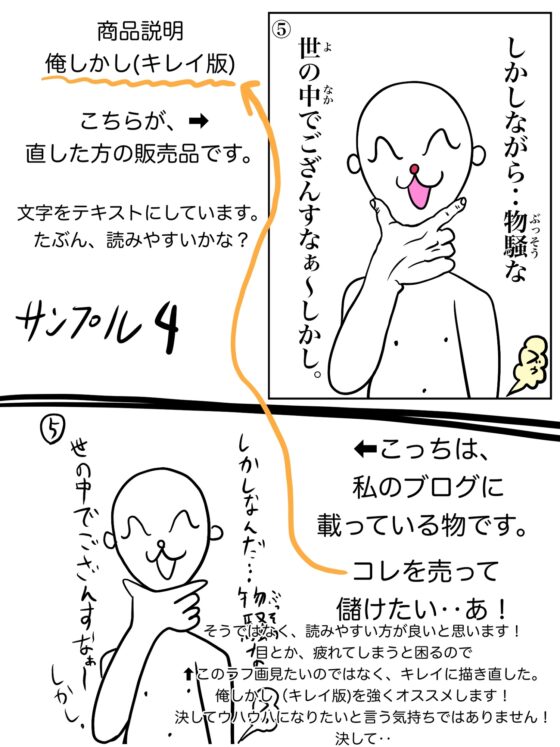 商品説明
俺しかし(キレイ版)
こちらが、➡
直した方の販売品です。
文字をテキストにしています。
たぶん、読みやすいかな？
サンプル4
⑤
しかしながら‥物騒な
ぶっそう
世の中でござんすなぁ〜しかし。
よ
なか
ブゥ
⑤
しかしなんだ…物騒な
ぶっそう
世の中でござんすなぁ〜
しかし。
⬅こっちは、
私のブログに
載っている物です。
コレを売って
儲けたい‥あ！
そうではなく、読みやすい方が良いと思います！
目とか、疲れてしまうと困るので
⬆このラフ画見たいのではなく、キレイに描き直した。
俺しかし（キレイ版)を強くオススメします！
決してウハウハになりたいと言う気持ちではありません！
決して‥